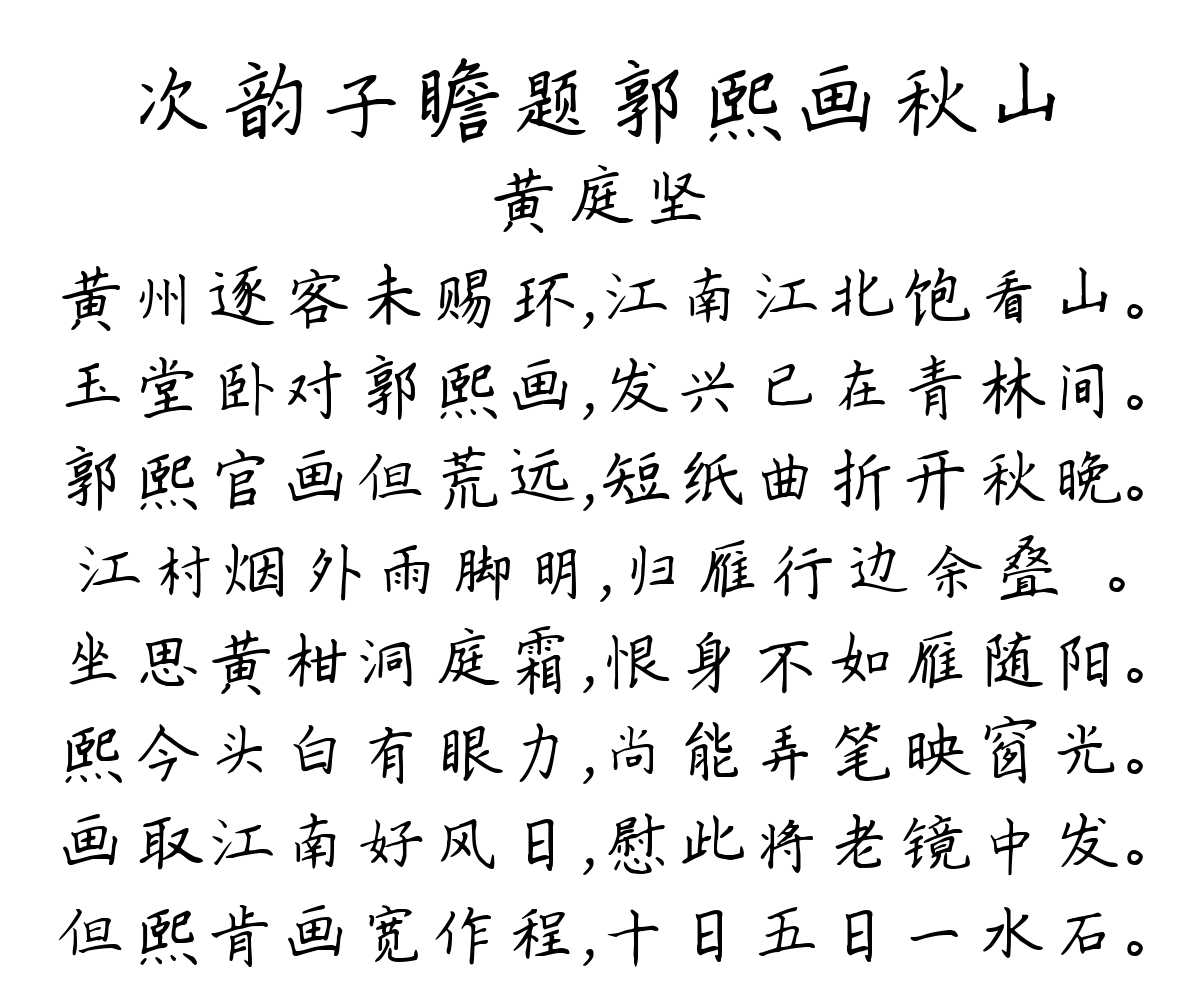 次韵子瞻题郭熙画秋山
黄庭坚
黄州逐客未赐环,江南江北饱看山。
玉堂卧对郭熙画,发兴已在青林间。
郭熙官画但荒远,短纸曲折开秋晚。
江村烟外雨脚明,归雁行边余叠 。
坐思黄柑洞庭霜,恨身不如雁随阳。
熙今头白有眼力,尚能弄笔映窗光。
画取江南好风日,慰此将老镜中发。
但熙肯画宽作程,十日五日一水石。